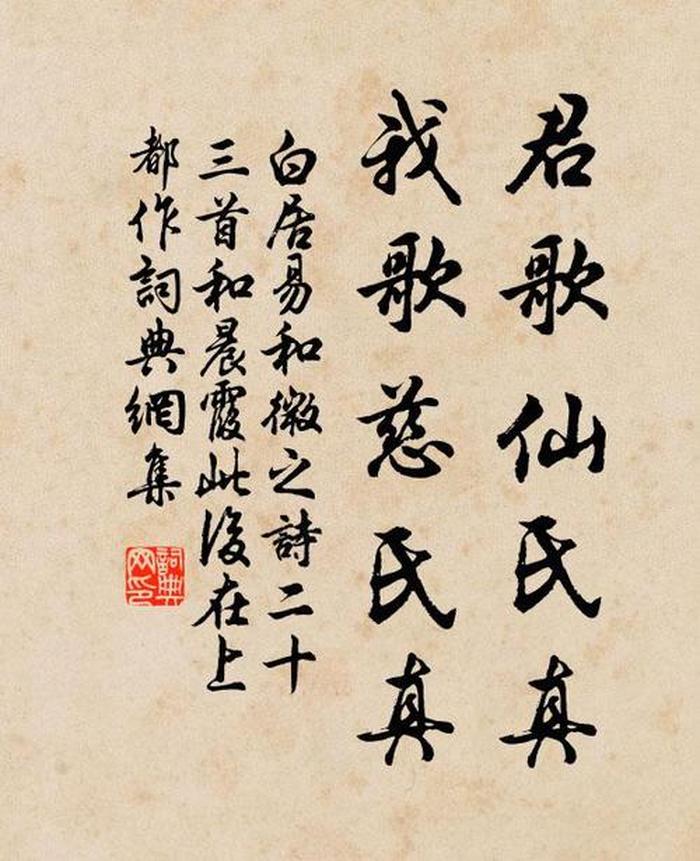 君歌仙氏真
我歌慈氏真
白居易和微之詩二十
三首和晨霞此後在上
都作詞典網集
詞典网印